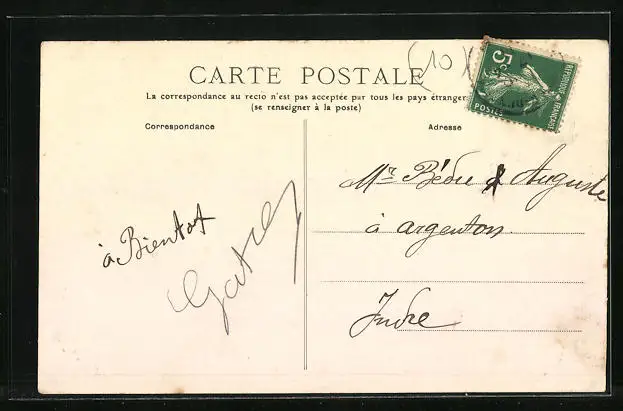 (10)
CARTE POSTALE
La correspondance au recto n'est pas acceptée par tous les pays étranger
(se renseigner à la poste)
5c
POSTES
REPUBLIQUE FRANÇAISE
Correspondance
à Bientot
Adresse
Mr Bédu Auguste
à argenton
Indre